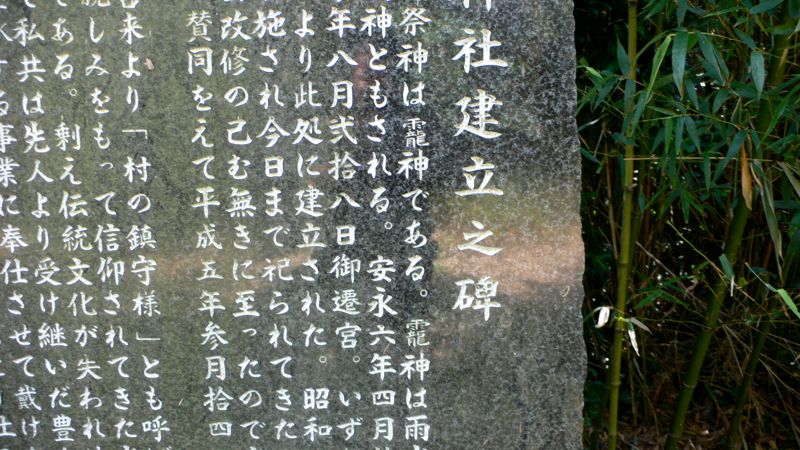 神社建立之碑
祭神は龗神である。龗神は雨
神ともされる。安永六年四月
年八月弐拾八日御遷宮。いず
より此処に建立された。昭和
施され今日まで祀られてきた
改修の己む無きに至ったので
賛同をえて平成五年参月拾四
古来より「村の鎮守様」とも呼ば
親しみをもって信仰されてきた
である。剰え伝統文化が失われ
て私共は先人より受け継いだ豊
する事業に奉仕させて戴け